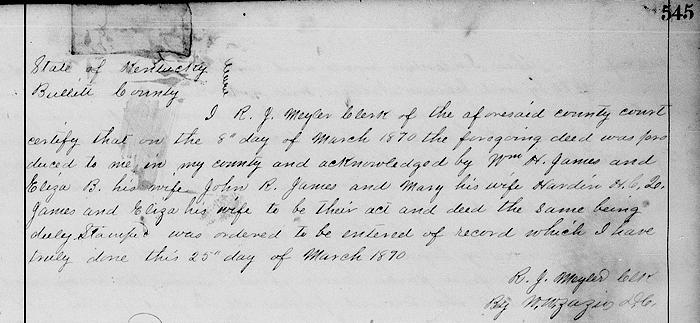 545
State of Kentucky
Bullitt County
I R. J. Meyler Clerk of the aforesaid county court
certify that on the 8" day of March 1870 the foregoing deed was pro
duced to me in my county and acknowledged by Wm H. James and
Eliza B. his wife John R. James and Mary his wife Hardin H. C.
James and Eliza his wife to be their act and deed the same being
duly Stamped was ordered to be entered of record which I have
truly done this 25" day of March 1870
R. J. Meyler Clk
By